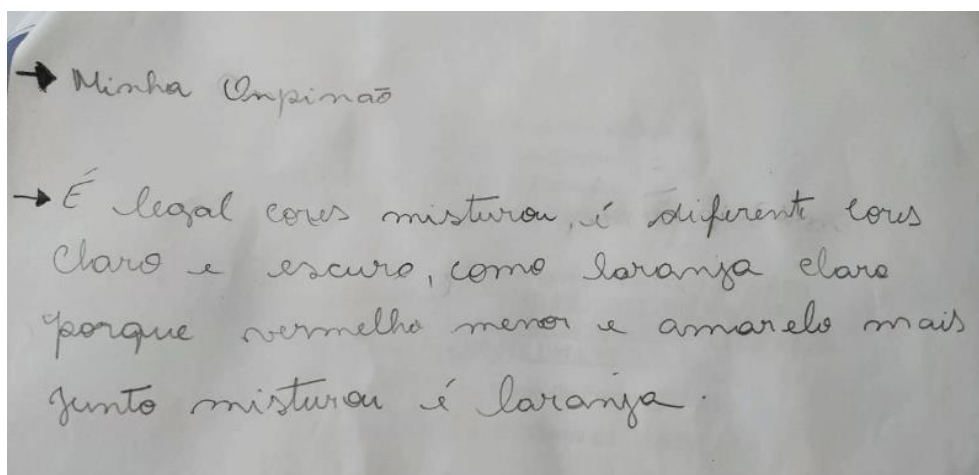 → Minha Onpinaõ
→ É legal cores misturou, é diferente cores
claro e escuro, como laranja claro
porque vermelho menor e amarelo mais
junto misturou é laranja.